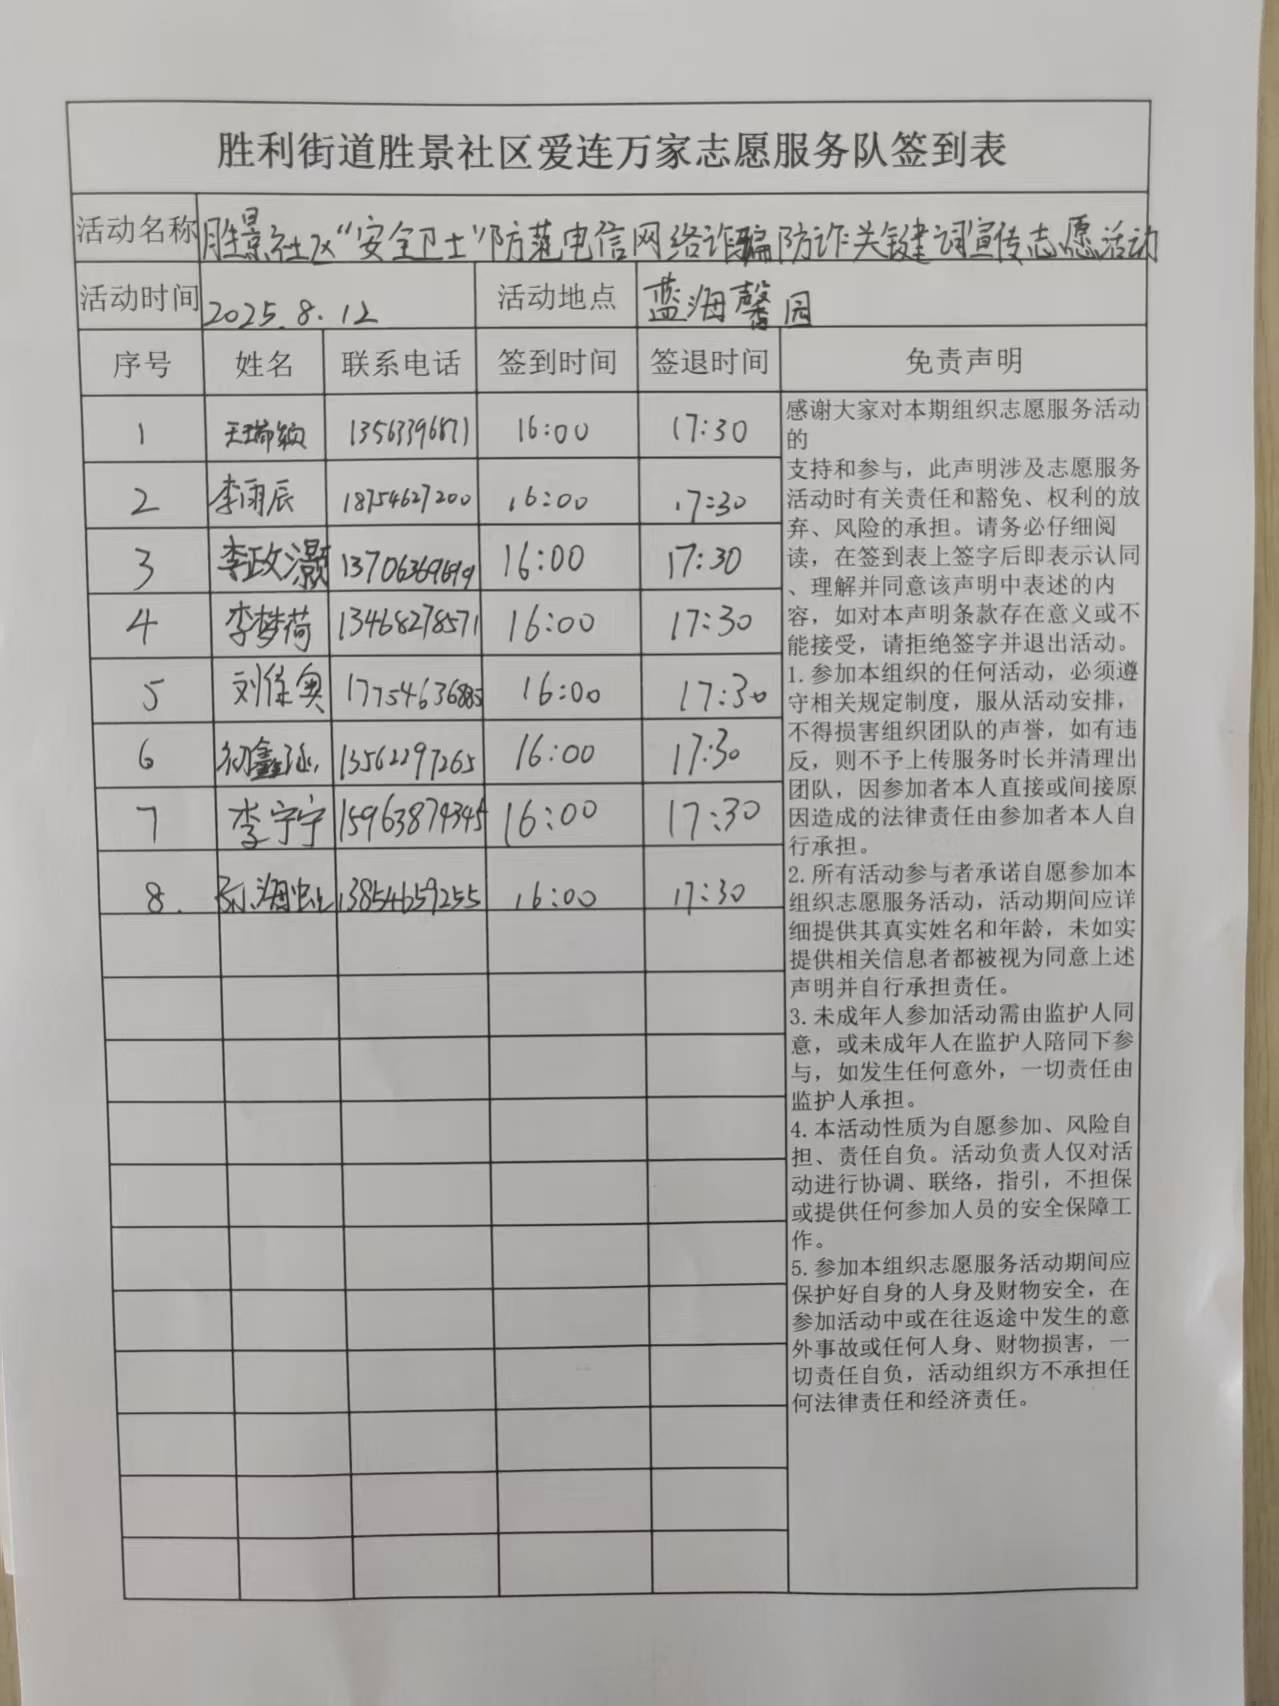 胜利街道胜景社区爱连万家志愿服务队签到表
活动名称 胜景社区“安全卫士”防范电信网络诈骗防诈关键词宣传志愿活动
活动时间 2025.8.12 活动地点 蓝海馨园
序号 姓名 联系电话 签到时间 签退时间 免责声明
1 16:00 17:30
2 李雨辰 18754627200 16:00 17:30
3 李政灏 16:00 17:30
4 李梦荷 13468278571 16:00 17:30
5 16:00 17:30
6 13562297265 16:00 17:30
7 李宁宁 15963874345 16:00 17:30
8. 13854659255 16:00 17:30
感谢大家对本期组织志愿服务活动
的
支持和参与，此声明涉及志愿服务
活动时有关责任和豁免、权利的放
弃、风险的承担。请务必仔细阅
读，在签到表上签字后即表示认同
、理解并同意该声明中表述的内
容，如对本声明条款存在意义或不
能接受，请拒绝签字并退出活动。
1.参加本组织的任何活动，必须遵
守相关规定制度，服从活动安排，
不得损害组织团队的声誉，如有违
反，则不予上传服务时长并清理出
团队，因参加者本人直接或间接原
因造成的法律责任由参加者本人自
行承担。
2.所有活动参与者承诺自愿参加本
组织志愿服务活动，活动期间应详
细提供其真实姓名和年龄，未如实
提供相关信息者都被视为同意上述
声明并自行承担责任。
3.未成年人参加活动需由监护人同
意，或未成年人在监护人陪同下参
与，如发生任何意外，一切责任由
监护人承担。
4.本活动性质为自愿参加、风险自
担、责任自负。活动负责人仅对活
动进行协调、联络，指引，不担保
或提供任何参加人员的安全保障工
作。
5.参加本组织志愿服务活动期间应
保护好自身的人身及财物安全，在
参加活动中或在往返途中发生的意
外事故或任何人身、财物损害，一
切责任自负，活动组织方不承担任
何法律责任和经济责任。